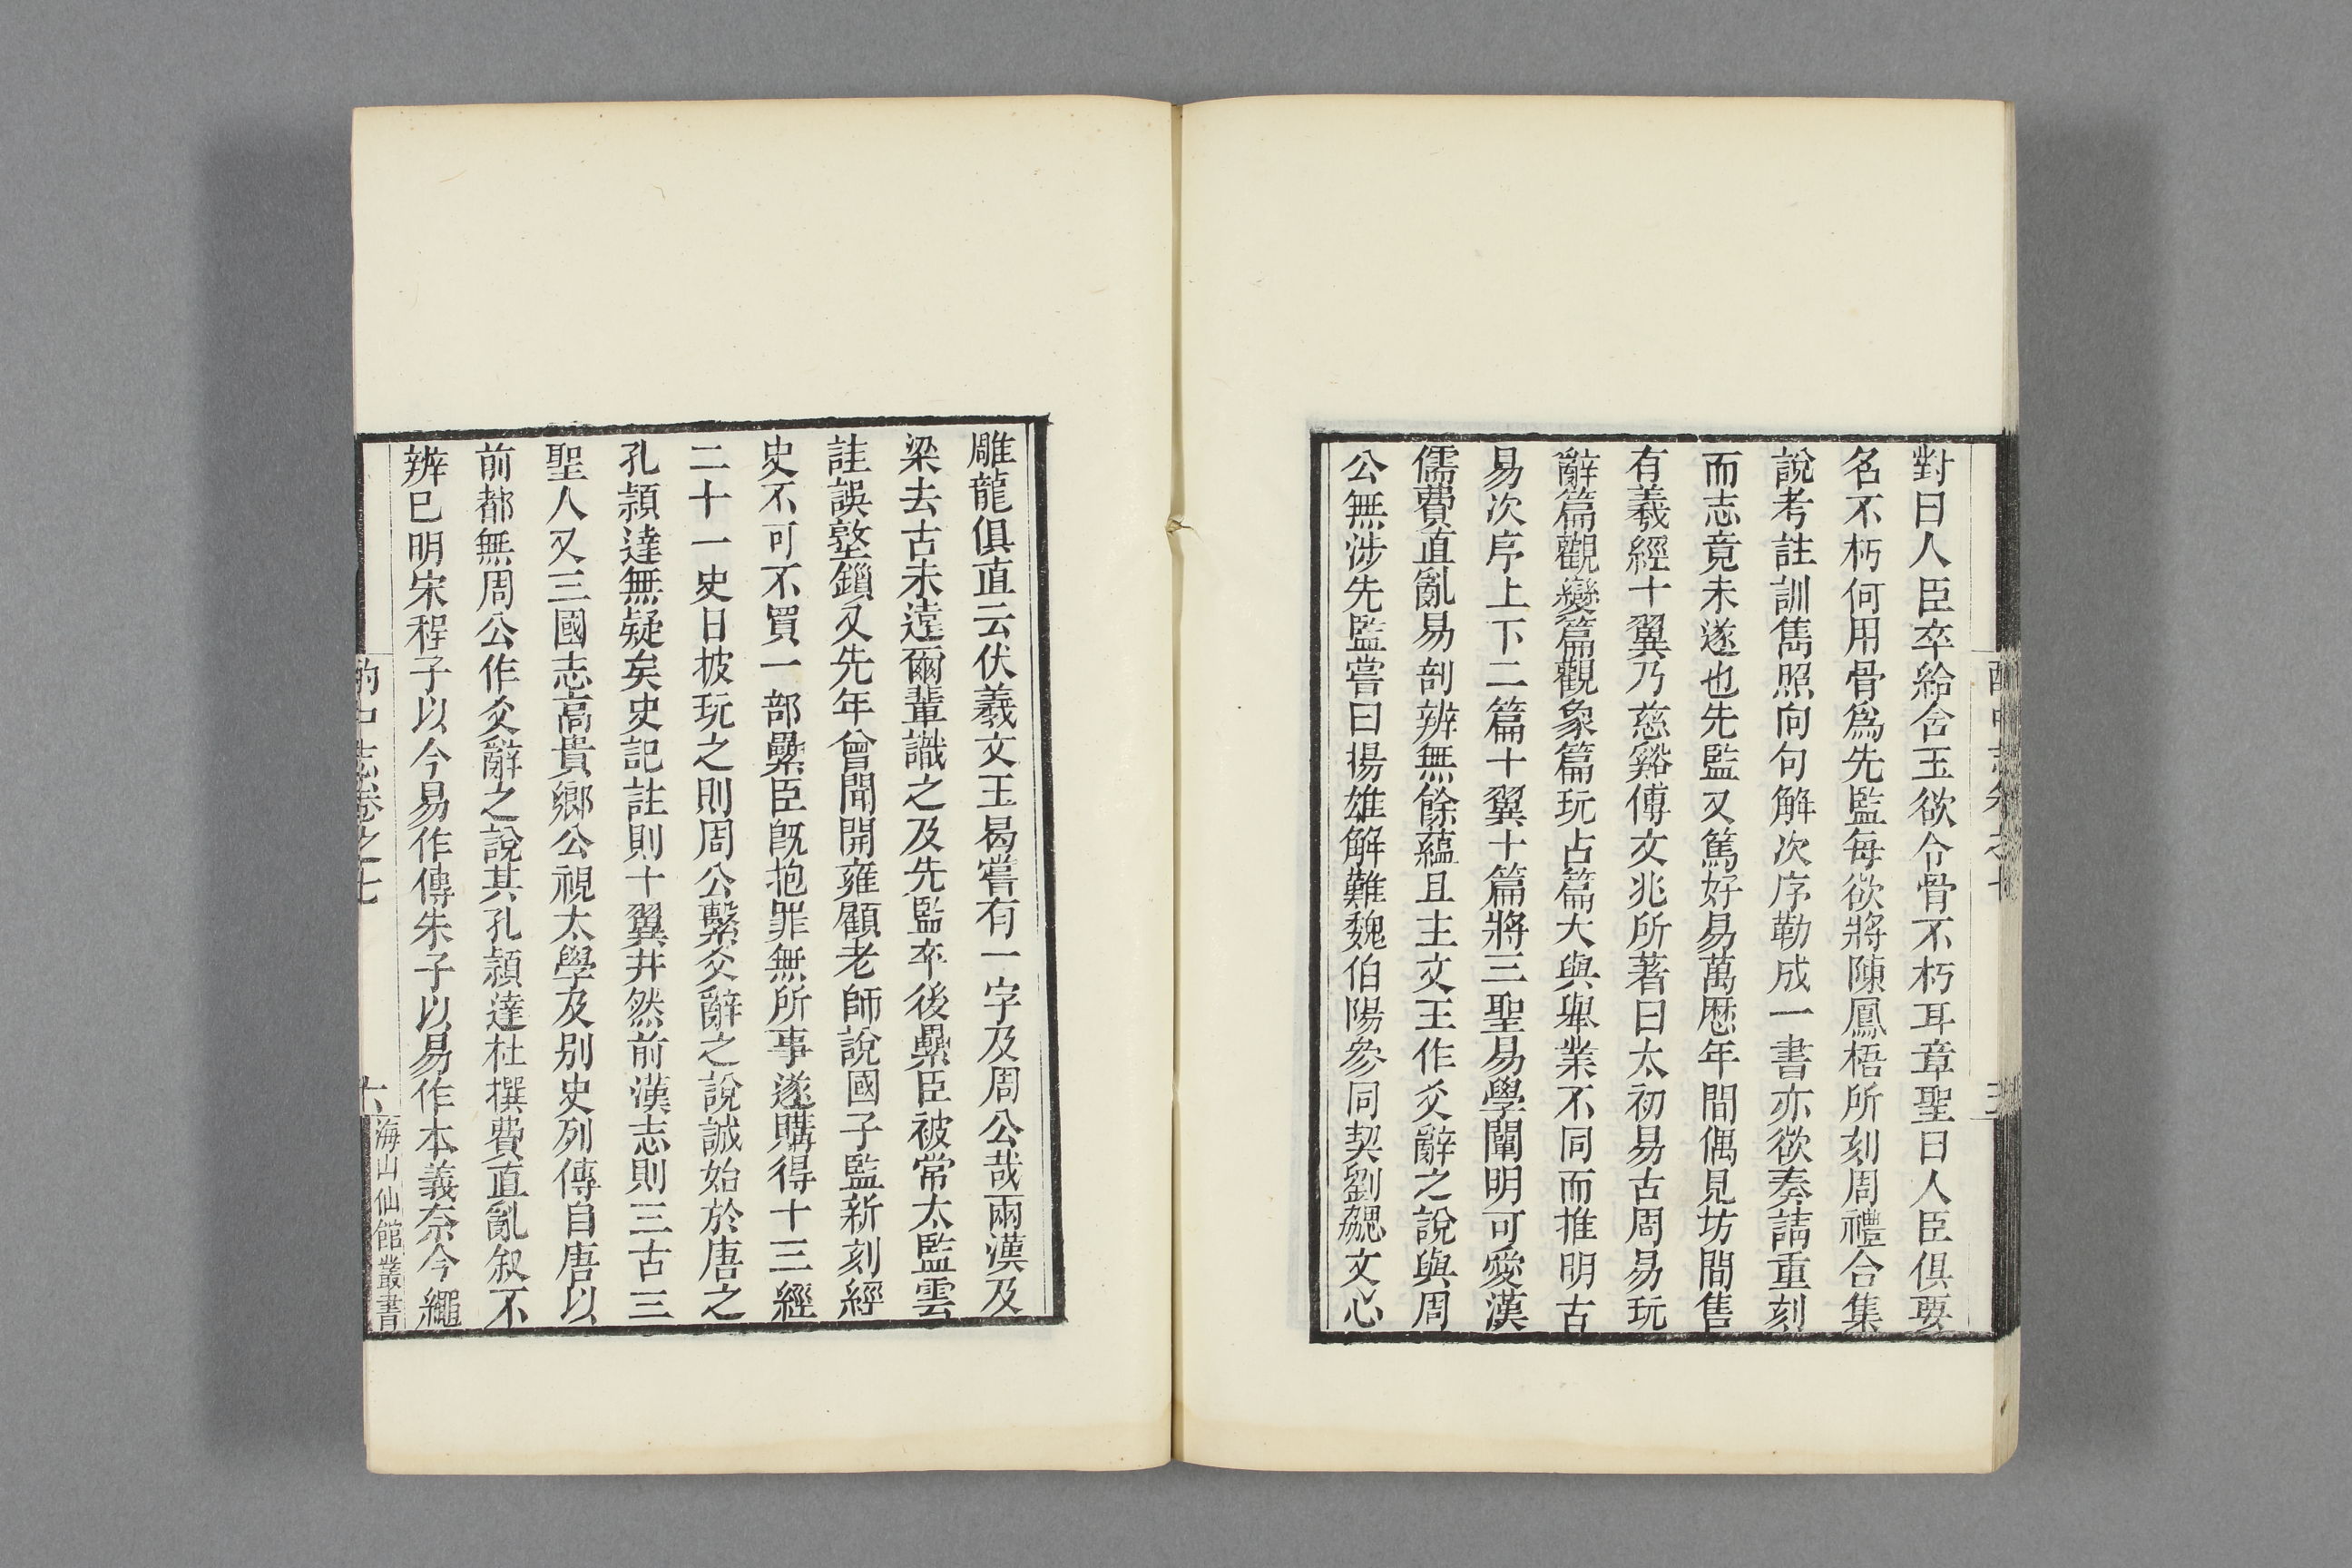 對曰人臣卒給含玉欲令骨不朽耳章聖曰人臣俱要
名不朽何用骨爲先監每欲將陳鳳梧所刻周禮合集
說考註訓雋照向句解次序勒成一書亦欲奏請重刻
而志竟未遂也先監又篤好易萬厯年間偶見坊間售
有羲經十翼乃慈谿傅文兆所著曰太初易古周易玩
辭篇觀變篇觀象篇玩占篇大與舉業不同而推明古
易次序上下二篇十翼十篇將三聖易學闡明可愛漢
儒費直亂易剖辨無餘蘊且主文王作爻辭之說與周
公無涉先監嘗曰揚雄解難魏伯陽參同契劉勰文心
雕龍俱直云伏羲文王曷嘗有一字及周公哉兩漢及
梁去古未遠爾輩識之及先監卒後纍臣被常太監雲
註誤墪鎖又先年曾聞開雍顧老師說國子監新刻經
史不可不買一部纍臣旣抱罪無所事遂購得十三經
二十一史日披玩之則周公繫爻辭之說誠始於唐之
孔潁達無疑矣史記註則十翼井然前漢志則三古三
聖人又三國志高貴鄉公視太學及别史列傳自唐以
前都無周公作爻辭之說其孔潁達杜撰費直亂叙不
辨已明宋程子以今易作傳朱子以易作本義奈今繩
酌中志卷之七
海山仙館叢書